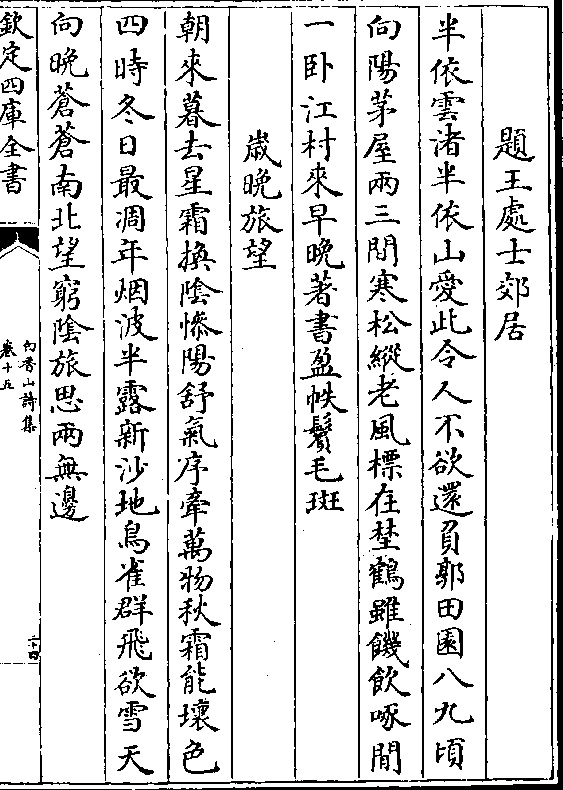 題王處士郊居
半依雲渚半依山愛此令人不欲還負郭田園八九頃
向陽茅屋兩三間寒松縱老風標在埜鶴雖饑飲啄閒
一卧江村來早晩著書盈帙鬢毛斑
歲晩旅望
朝來暮去星霜換陰慘陽舒氣序牽萬物秋霜能壞色
四時冬日最凋年烟波半露新沙地鳥雀群飛欲雪天
向晩蒼蒼南北望窮陰旅思兩無邊
欽定四庫全書
白香山詩集
卷十五
二十四